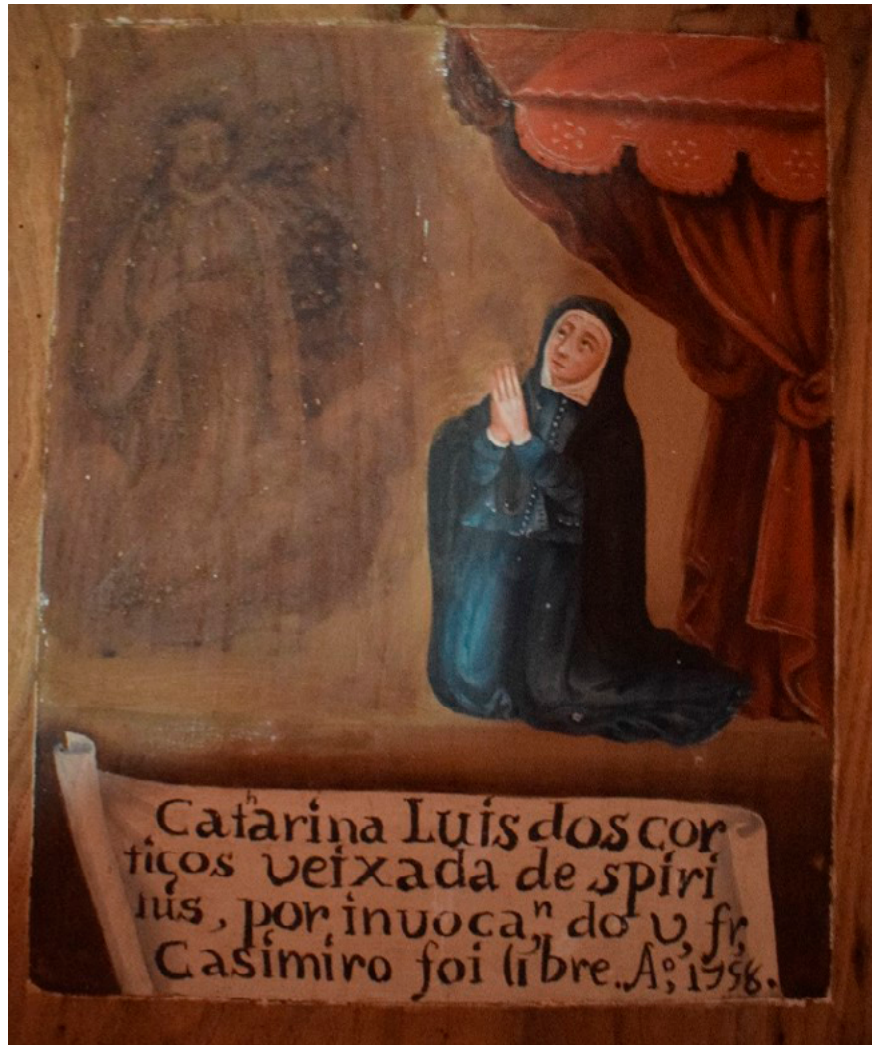 Catʰarina Luis dos cor
tiços veixada de spiri
tus, por invocaⁿ, do v, fr,
Casimiro foi libre. Aº, 1758.